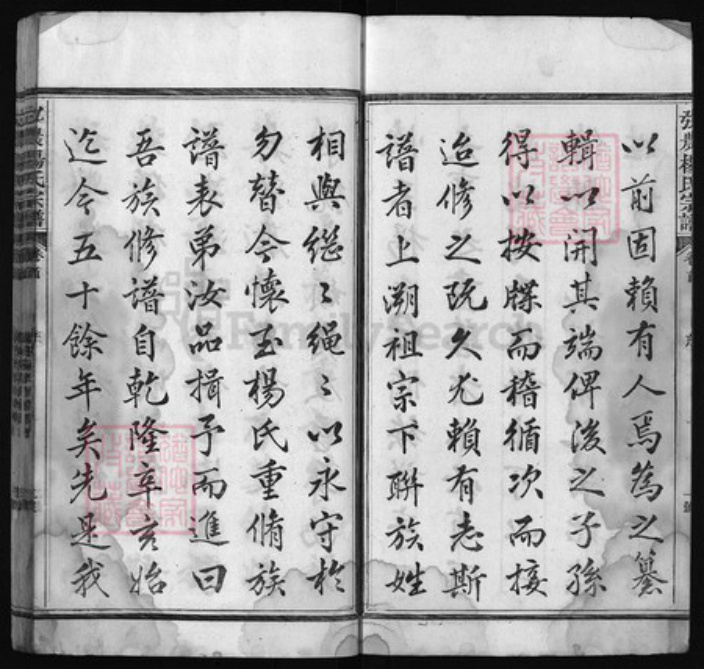 以前固賴有人焉為之纂
輯以開其端俾後之子孫
得以按牒而稽循次而接
迨修之既久尤賴有志斯
譜者上溯祖宗下聯族姓
相與繼〻繩〻以永守於
勿替今懷玉楊氏重脩族
譜表弟汝品揖予而進曰
吾族修譜自乾隆辛亥始
迄今五十餘年矣先是我
楊氏宗譜
卷首
FamilySearch